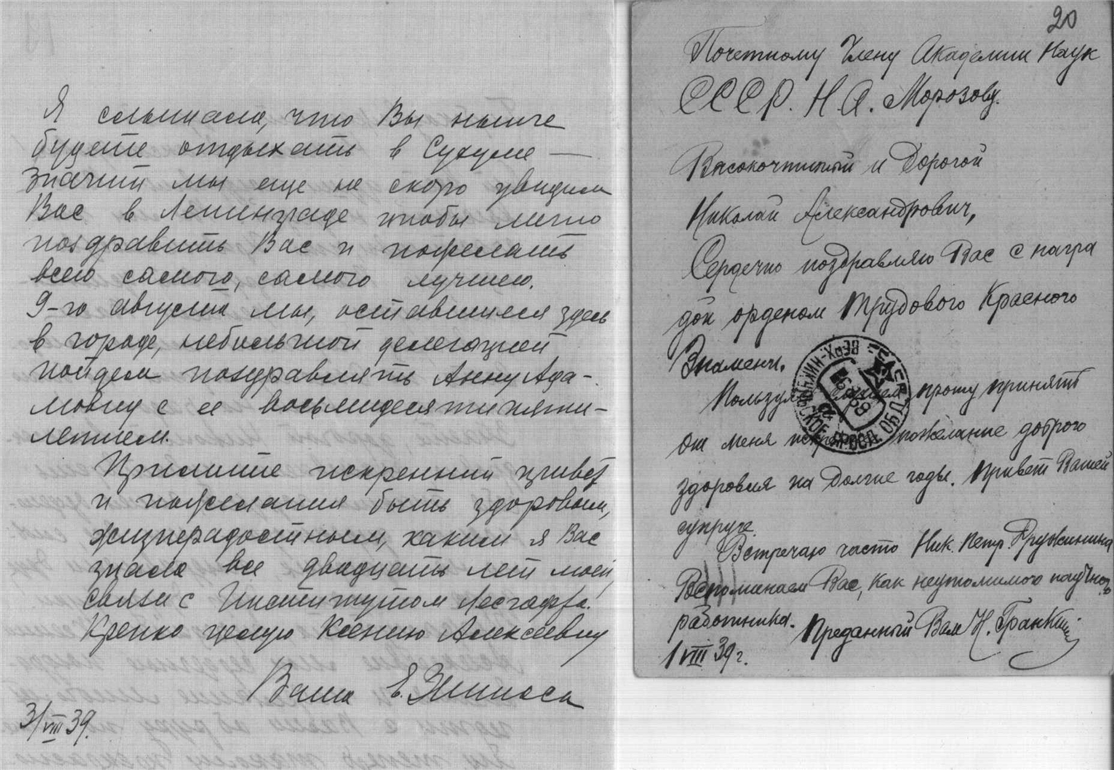 Я слышала, что Вы нынче
будете отдыхать в Сухуме —
значит мы еще не скоро увидим
Вас в Ленинграде чтобы лично
поздравить Вас и пожелать
всего самого, самого лучшего.
9-го августа мы, оставшиеся здесь
в городе, небольшой делегацией
пойдем поздравлять Анну Ада-
мовну с ее восьмидесятипяти-
летием.
Примите искренний привет
и пожелания быть здоровым,
жизнерадостным, каким я Вас
знала все двадцать лет моей
связи с Институтом Лесгафта.
Крепко целую Ксению Алексеевну
Ваша Е.
3/VIII 39.
20
Почетному Члену Академии Наук
СССР. Н А. Морозову.
Высокочтимый и Дорогой
Николай Александрович,
Сердечно поздравляю Вас с награ
дой орденом Трудового Красного
Знамени.
прошу принять
от меня пожелание доброго
здоровия на долгие годы. Привет Вашей
супруге.
Встречаю часто Ник. Петр. Дружинина
Вспоминаем Вас, как неутомимого научного
работника. Преданный Вам Н.
1 VIII 39 г.